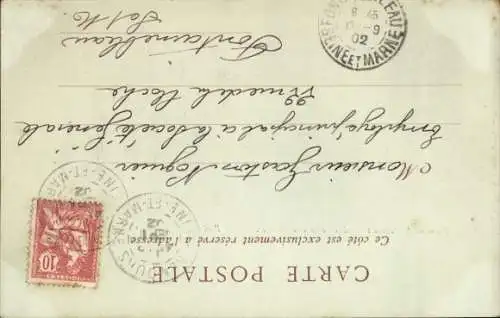 CARTE POSTALE
Ce côté est exclusivement réservé à l'adresse
Monsieur Gaston Noguier
Employé principal à la Société Générale
22 rue de la Cloche
Fontainebleau
S et M.
10
SEINE-ET-MARNE
02
SEINE-ET-MARNE
02
FONTAINEBLEAU
8 45
9
02
SEINE ET MARNE